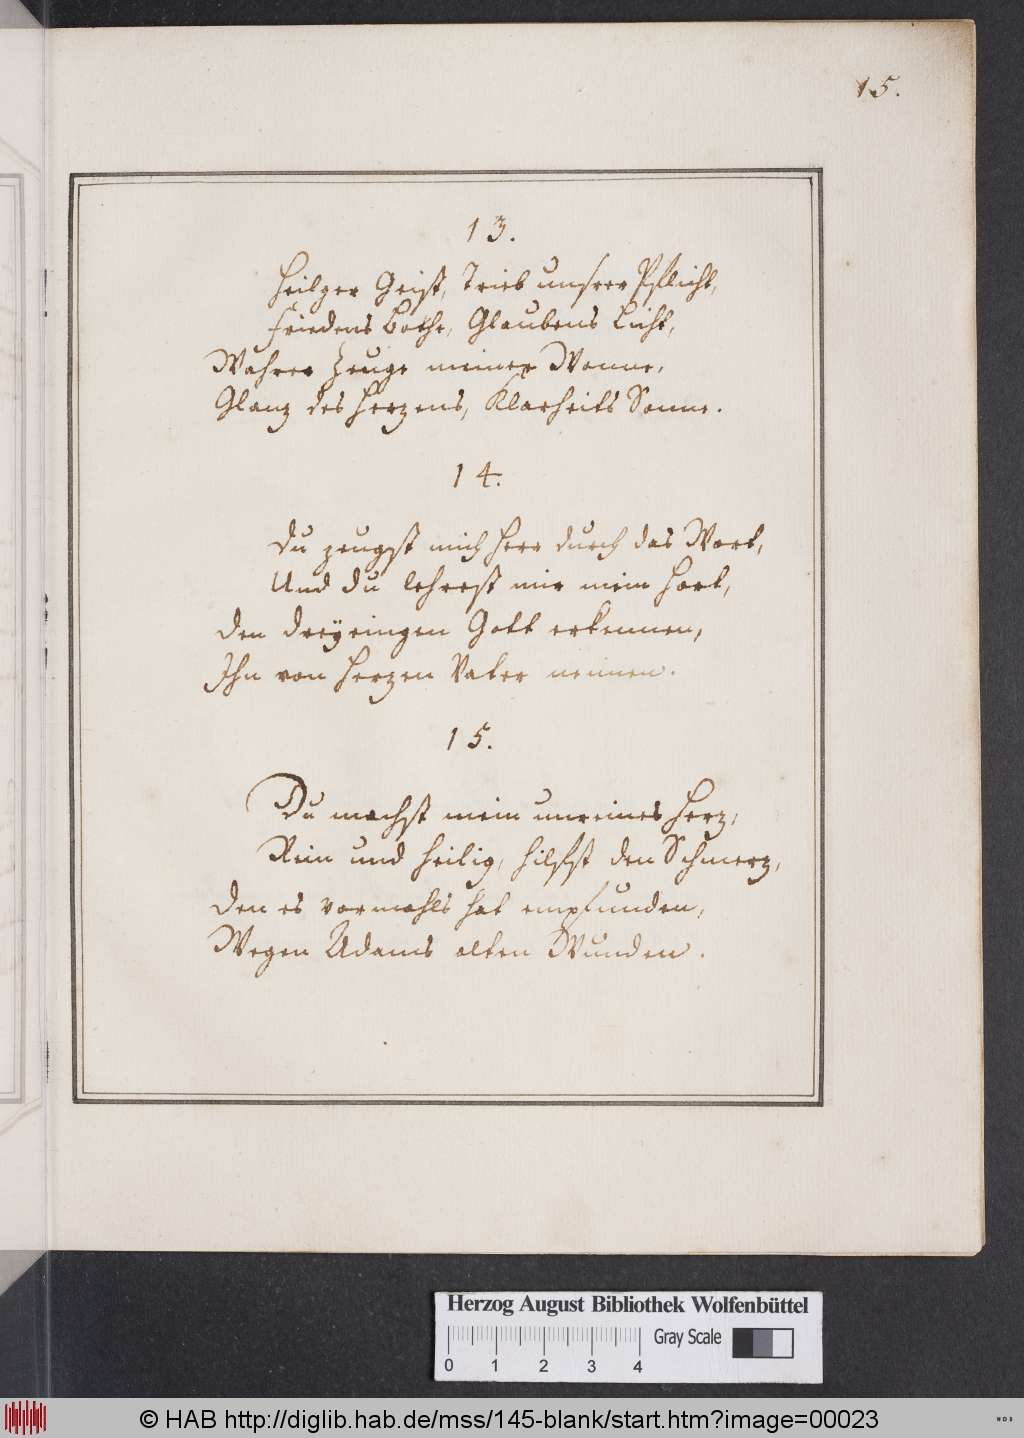 15.
13.
Heilger Geist, Trieb unsrer Pflicht,
Friedens Bothe, Glaubens Licht,
Wahrer Zeuge meiner Wonne,
Glanz des Herzens, Klarheits Sonne.
14.
Du zeugst mich Herr durch das Wort,
Und du lehrest mir mein Hort,
Den dreyeingen Gott erkennen,
Ihn von Herzen Vater nennen.
15.
Du machst mein unreines Herz,
Rein und heilig, hilfst den Schmerz,
Den es vormahls hat empfunden,
Wegen Adams alten Wunden.
Herzog August Bibliothek Wolfenbüttel
Gray Scale
0 1 2 3 4
© HAB http://diglib.hab.de/mss/145-blank/start.htm?image=00023